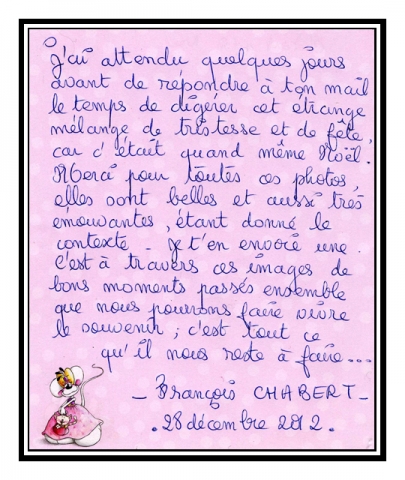 J'ai attendu quelques jours
avant de répondre à ton mail
le temps de digérer cet étrange
mélange de tristesse et de fête,
car c'était quand même Noël.
Merci pour toutes ces photos,
elles sont belles et aussi très
émouvantes, étant donné le
contexte - je t'en envoie une.
C'est à travers ces images de
bons moments passés ensemble
que nous pourrons faire vivre
le souvenir ; c'est tout ce
qu'il nous reste à faire...
- François CHABERT -
. 28 décembre 2012 .